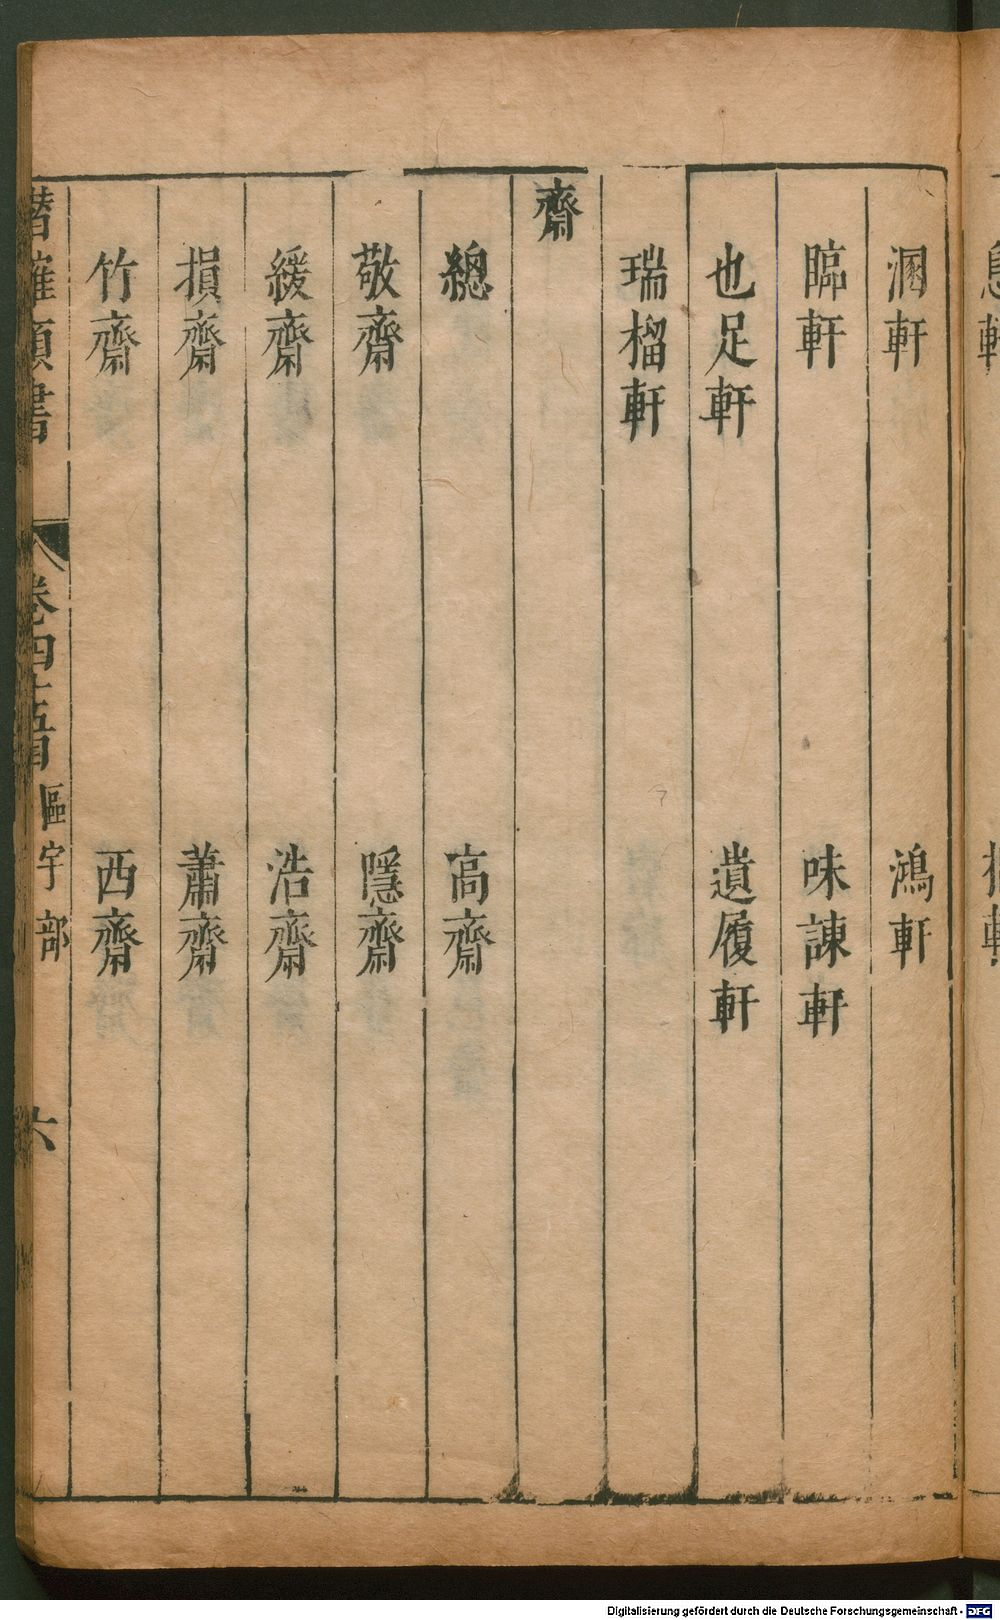 溷軒 鴻軒
臨軒 味諫軒
也足軒 遺履軒
瑞榴軒
齋
總 高齋
敬齋 隱齋
緩齋 浩齋
損齋 蕭齋
竹齋 西齋
潛確類書 卷四十五目 區宇部 六
Digitalisierung gefördert durch die Deutsche Forschungsgemeinschaft - DFG